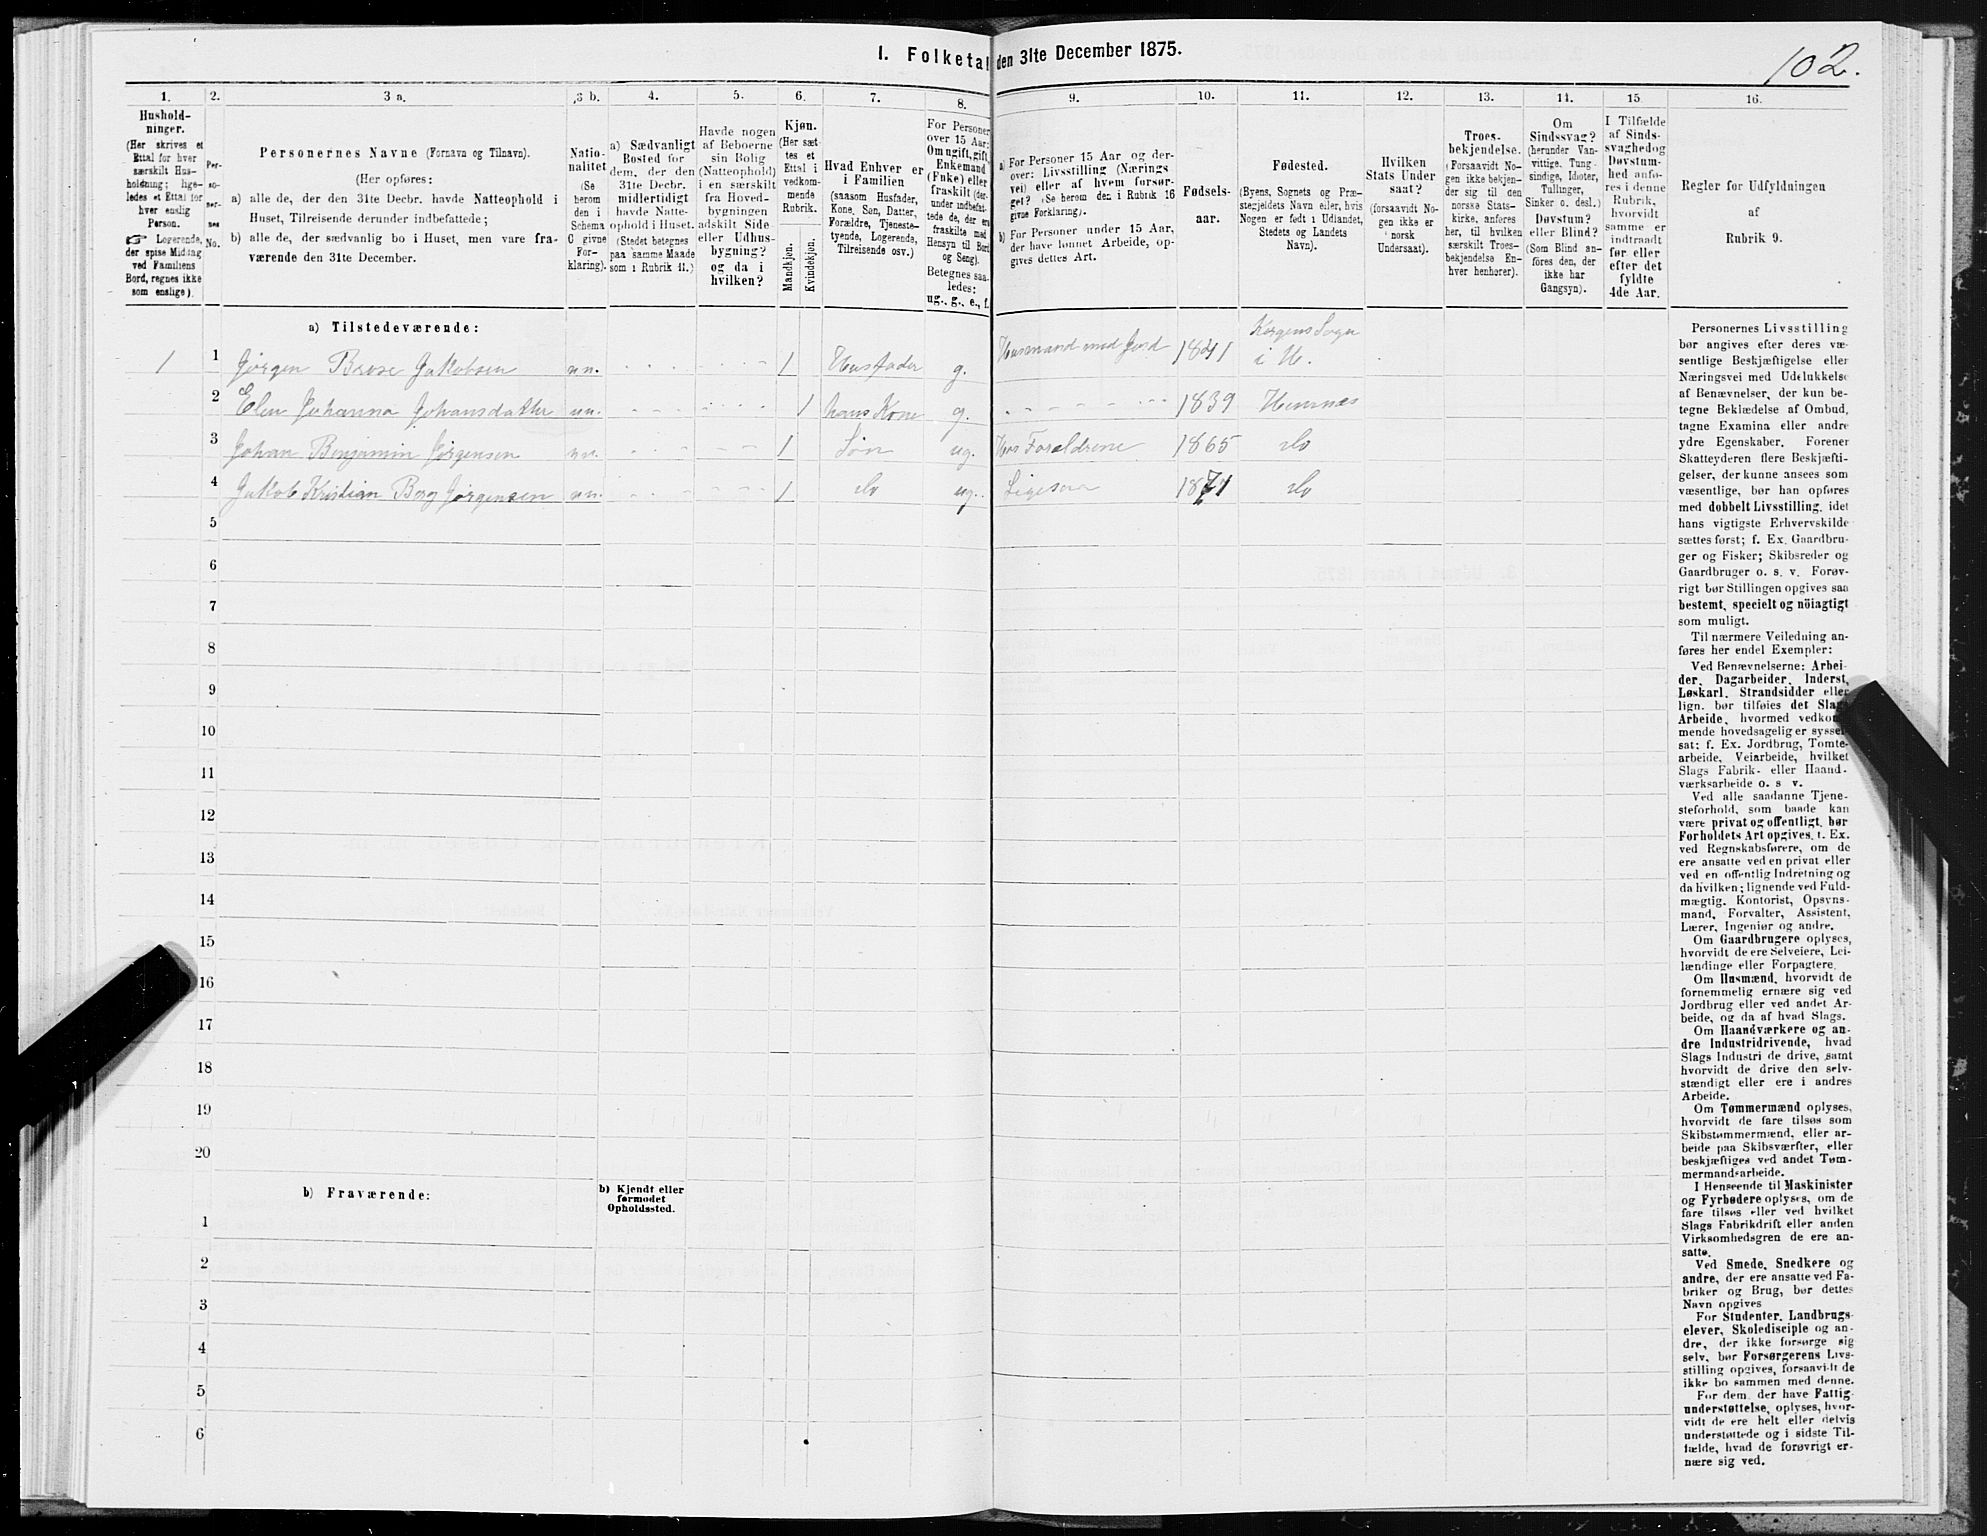 I. Folketal den 31te December 1875.
102.
1.
2.
3 a.
3 b.
4.
5.
6.
7.
8.
9.
10.
11.
12.
13.
14.
15.
16.
Hushold-
ninger.
(Her skrives et
Ettal for hver
særskilt Hus-
holdning; lige-
ledes et Ettal for
hver enslig
Person.
☞ Logerende,
der spise Middag
ved Familiens
Bord, regnes ikke
som enslige).
Per-
so-
ner-
nes
No.
Personernes Navne (Fornavn og Tilnavn).
(Her opføres:
a) alle de, der den 31te Decbr. havde Natteophold i
Huset, Tilreisende derunder indbefattede;
b) alle de, der sædvanlig bo i Huset, men vare fra-
værende den 31te December.
Natio-
nalitet
(Se
herom
den i
Schema
C givne
For-
klaring).
a) Sædvanligt
Bosted for
dem, der den
31te Decbr.
midlertidigt
havde Natte-
ophold i Huset.
(Stedet betegnes
paa samme Maade
som i Rubrik 11.)
Havde nogen
af Beboerne
sin Bolig
(Natteophold)
i en særskilt
fra Hoved-
bygningen
adskilt Side-
eller Udhus-
bygning?
og da i
hvilken?
Kjøn.
(Her sæt-
tes et
Ettal i
vedkom-
mende
Rubrik.
Mandkjøn.
Kvindekjøn.
Hvad Enhver er
i Familien
(saasom Husfader,
Kone, Søn, Datter,
Forældre, Tjeneste-
tyende, Logerende,
Tilreisende osv.)
For Personer
over 15 Aar:
Om ugift, gift,
Enkemand
(Enke) eller
fraskilt (der-
under indbefat-
tede de, der ere
fraskilte med
Hensyn til Bord
og Seng).
Betegnes saa-
ledes:
ug., g., e., f.
a) For Personer 15 Aar og der-
over: Livsstilling (Nærings-
vei) eller af hvem forsør-
get? (Se herom den i Rubrik 16
givne Forklaring).
b) For Personer under 15 Aar,
der have lønnet Arbeide, op-
gives dettes Art.
Fødsels-
aar.
Fødested.
(Byens, Sognets og Præ-
stegjeldets Navn eller, hvis
Nogen er født i Udlandet,
Stedets og Landets
Navn).
Hvilken
Stats Under
saat?
(forsaavidt No-
gen ikke er
norsk
Undersaat).
Troes-
bekjendelse.
(Forsaavidt No-
gen ikke bekjen-
der sig til den
norske Stats-
kirke, anføres
her, til hvilken
særskilt Troes-
bekjendelse En-
hver henhører).
Om
Sindssvag?
(herunder Van-
vittige, Tung-
sindige, Idioter,
Tullinger,
Sinker o. desl.)
Døvstum?
eller Blind?
(Som Blind an-
føres den, der
ikke har
Gangsyn).
I Tilfælde
af Sinds-
svaghed og
Døvstum-
hed anfø-
res i denne
Rubrik,
hvorvidt
samme er
indtraadt
før eller
efter det
fyldte
4de Aar.
Regler for Udfyldningen
af
Rubrik 9.
a) Tilstedeværende:
1 1 Jørgen Brose Jakobsen nn. 1 Husfader g. Husmand med Jord 1841 Korgens Sogn i H.
2 Elen Johanna Johansdatter nn. 1 hans Kone g. 1839 Hemnæs
3 Johan Benjamin Jørgensen nn. 1 Søn ug. Hos Forældrene 1865 do
4 Jakob Kristian Berg Jørgensen nn. 1 do ug. Ligesaa 1871 do
5
6
7
8
9
10
11
12
13
14
15
16
17
18
19
20
b) Fraværende:
b) Kjendt eller
formodet
Opholdssted.
1
2
3
4
5
6
Personernes Livsstilling
bør angives efter deres væ-
sentlige Beskjæftigelse eller
Næringsvei med Udelukkelse
af Benævnelser, der kun be-
tegne Beklædelse af Ombud,
tagne Examina eller andre
ydre Egenskaber. Forener
Skatteyderen flere Beskjæfti-
gelser, der kunne ansees som
væsentlige, bør han opføres
med dobbelt Livsstilling, idet
hans vigtigste Erhvervskilde
sættes først; f. Ex. Gaardbru-
ger og Fisker; Skibsreder og
Gaardbruger o. s. v. Forøv-
rigt bør Stillingen opgives saa
bestemt, specielt og nöiagtigt
som muligt.
Til nærmere Veiledning an-
føres her endel Exempler:
Ved Benævnelserne: Arbei-
der, Dagarbeider, Inderst,
Løskarl, Strandsidder eller
lign. bør tilføies det Slags
Arbeide, hvormed vedkom-
mende hovedsagelig er syssel-
sat; f. Ex. Jordbrug, Tomte-
arbeide, Veiarbeide, hvilket
Slags Fabrik- eller Haand-
værksarbeide o. s v.
Ved alle saadanne Tjene-
steforhold, som baade kan
være privat og offentligt, bør
Forholdets Art opgives, f. Ex.
ved Regnskabsførere, om de
ere ansatte ved en privat eller
ved en offentlig Indretning og
da hvilken; lignende ved Fuld-
mægtig, Kontorist, Opsyns-
mand, Forvalter, Assistent,
Lærer, Ingeniør og andre.
Om Gaardbrugere oplyses,
hvorvidt de ere Selveiere, Lei-
lændinge eller Forpagtere.
Om Husmænd, hvorvidt de
fornemmelig ernære sig ved
Jordbrug eller ved andet Ar-
beide, og da af hvad Slags.
Om Haandværkere og an-
dre Industridrivende, hvad
Slags Industri de drive, samt
hvorvidt de drive den selv-
stændigt eller ere i andres
Arbeide.
Om Tømmermænd oplyses,
hvorvidt de fare tilsøs som
Skibstømmermænd, eller ar-
beide paa Skibsværfter, eller
beskjæftiges ved andet Tøm-
mermandsarbeide.
I Henseende til Maskinister
og Fyrbødere oplyses, om de
fare tilsøs eller ved hvilket
Slags Fabrikdrift eller anden
Virksomhedsgren de ere an-
satte.
Ved Smede, Snedkere og
andre, der ere ansatte ved Fa-
briker og Brug, bør dettes
Navn opgives
For Studenter, Landbrugs-
elever, Skoledisciple og an-
dre, der ikke forsørge sig
selv, bør Forsørgerens Livs-
stilling opgives, forsaavidt de
ikke bo sammen med denne.
For dem, der have Fattig-
understøttelse, oplyses, hvor-
vidt de ere helt eller delvis
understøttede og i sidste Til-
fælde, hvad de forøvrigt er-
nære sig ved.